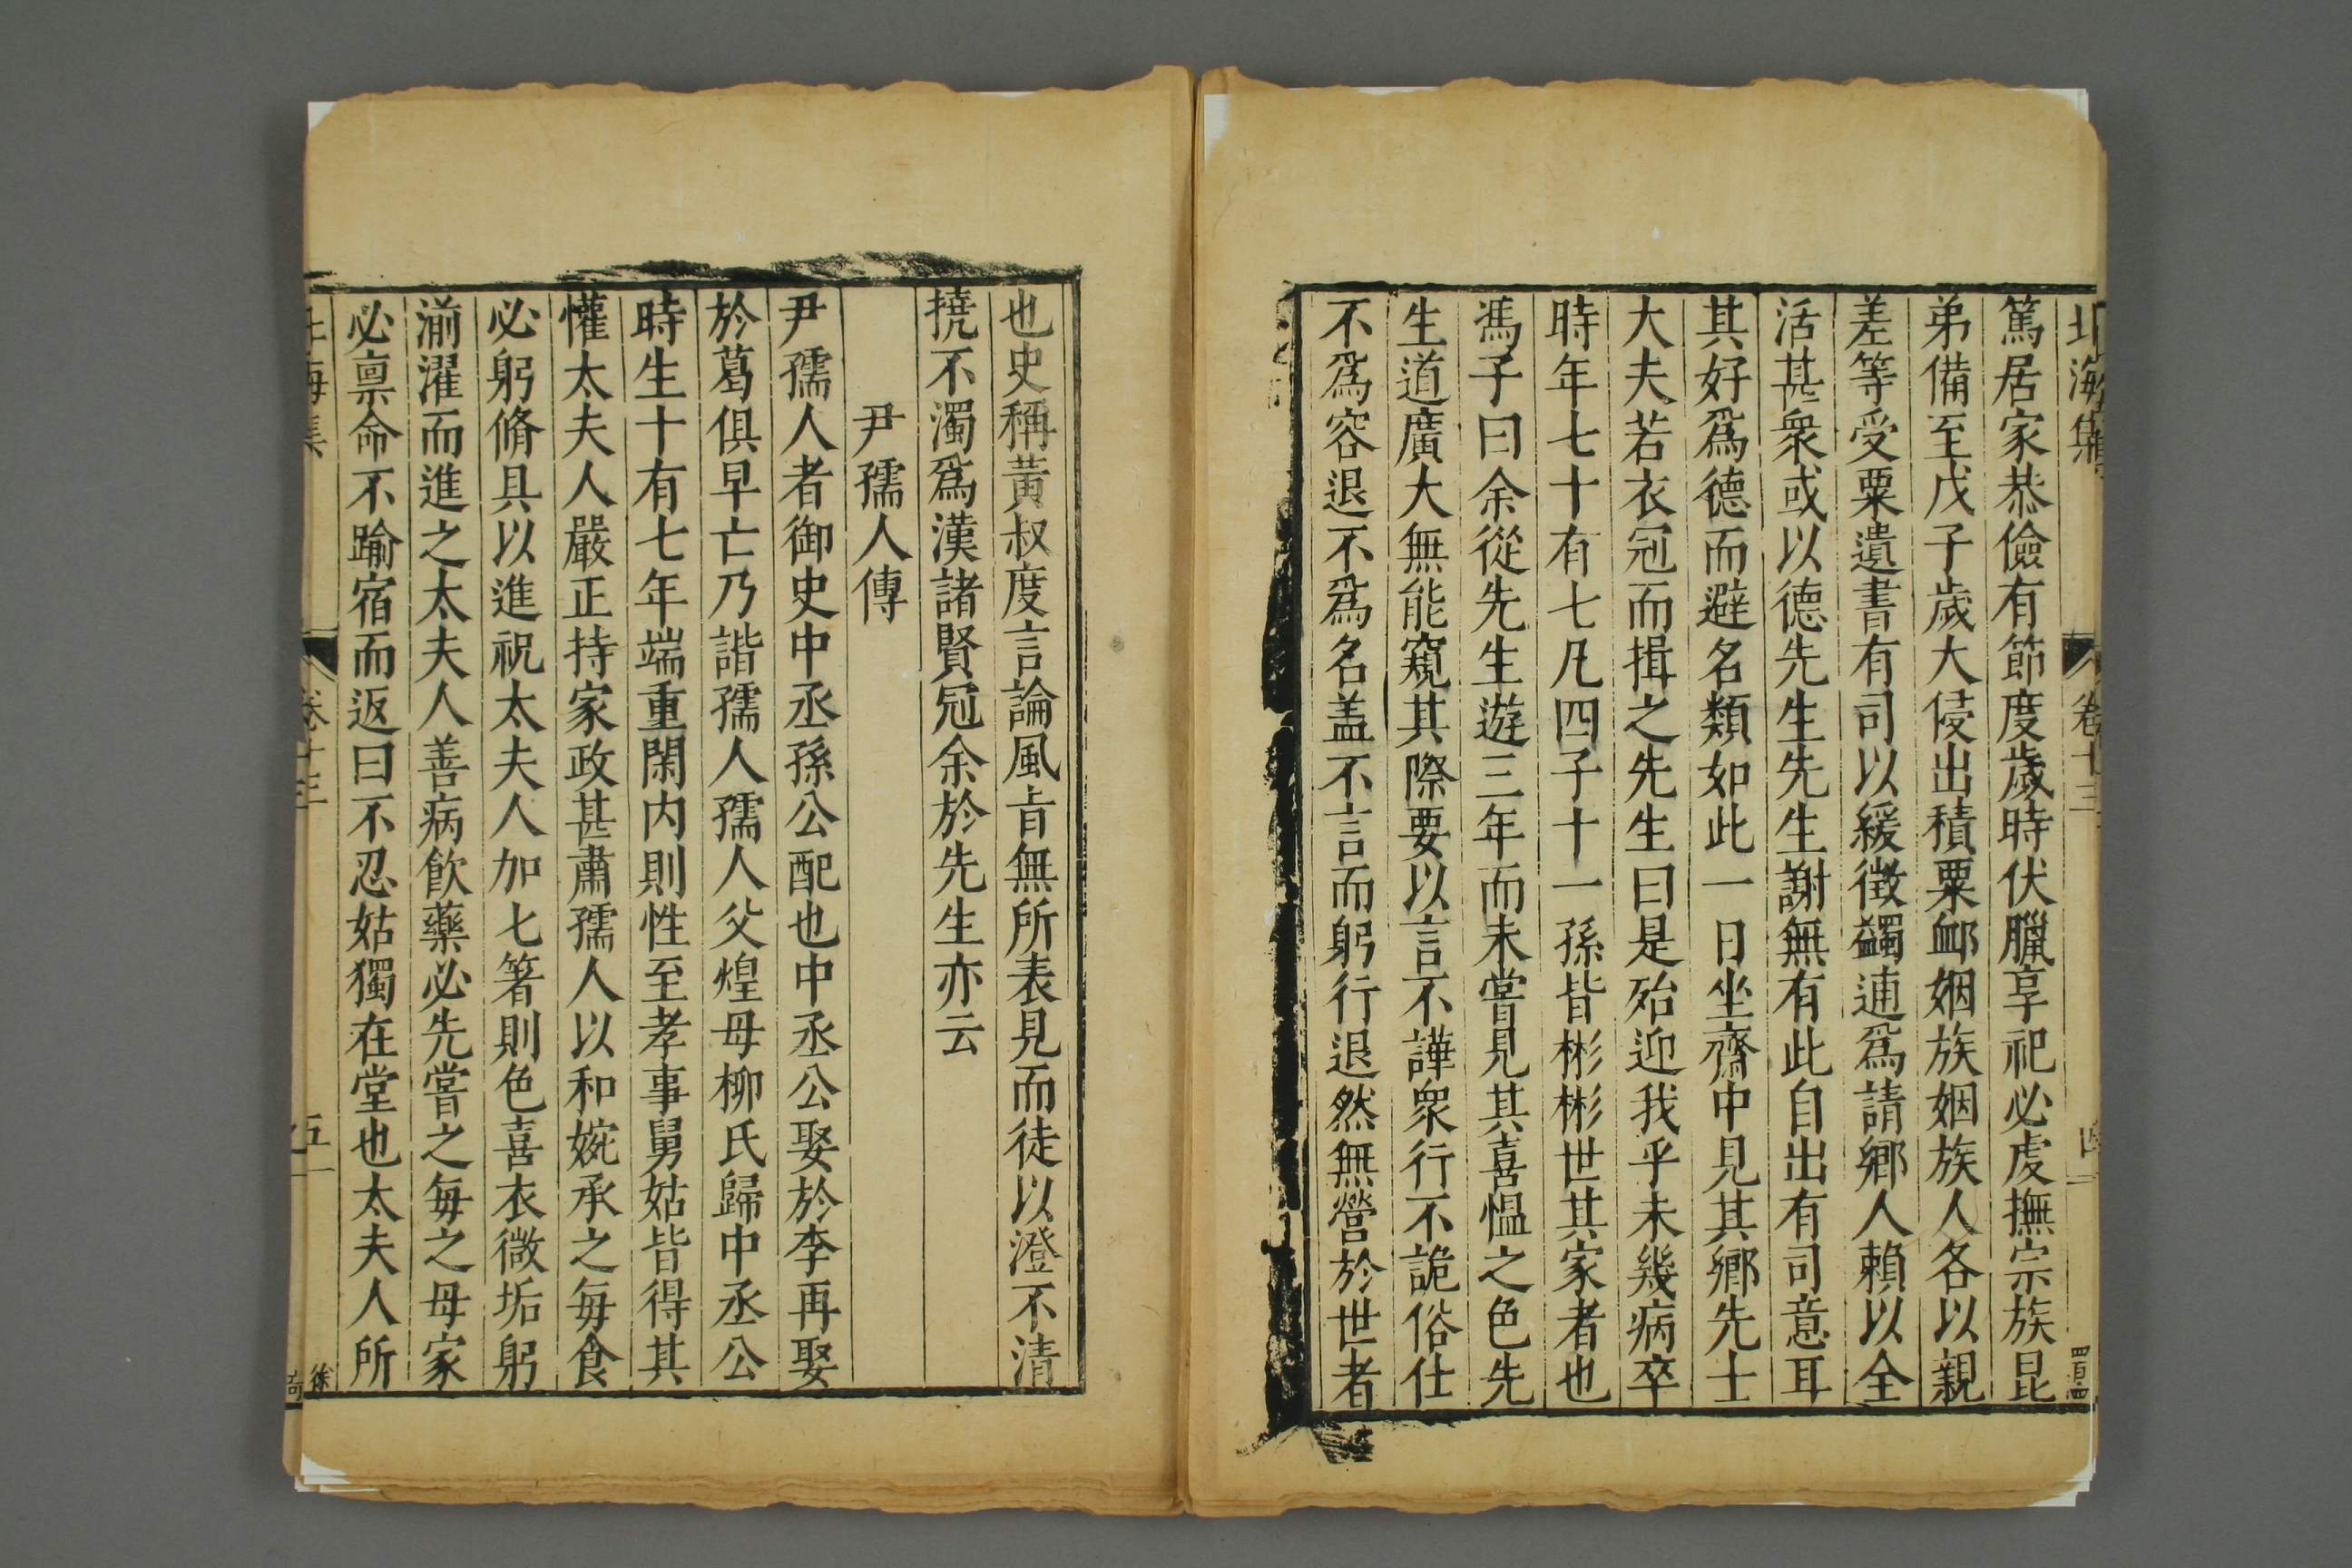 北海集 卷十三 四
篤居家恭儉有節度歲時伏臘享祀必虔撫宗族昆
弟備至戊子歲大祲出積粟䘏姻族姻族人各以親
差等受粟遺書有司以緩徵蠲逋爲請鄉人賴以全
活甚衆或以德先生先生謝無有此自出有司意耳
其好爲德而避名類如此一日坐齋中見其鄉先士
大夫若衣冠而揖之先生曰是殆迎我乎未幾病卒
時年七十有七凡四子十一孫皆彬彬世其家者也
馮子曰余從先生遊三年而未嘗見其喜慍之色先
生道廣大無能窺其際要以言不譁衆行不詭俗仕
不爲容退不爲名盖不言而躬行退然無營於世者
也史稱黃叔度言論風旨無所表見而徒以澄不清
撓不濁爲漢諸賢冠余於先生亦云
尹孺人傳
尹孺人者御史中丞孫公配也中丞公娶於李再娶
於葛俱早亡乃諧孺人孺人父煌母柳氏歸中丞公
時生十有七年端重閑内則性至孝事舅姑皆得其
懽太夫人嚴正持家政甚肅孺人以和婉承之每食
必躬脩具以進祝太夫人加匕箸則色喜衣微垢躬
湔濯而進之太夫人善病飮藥必先嘗之每之母家
必禀命不踰宿而返曰不忍姑獨在堂也太夫人所
海集 卷十三 五
徐